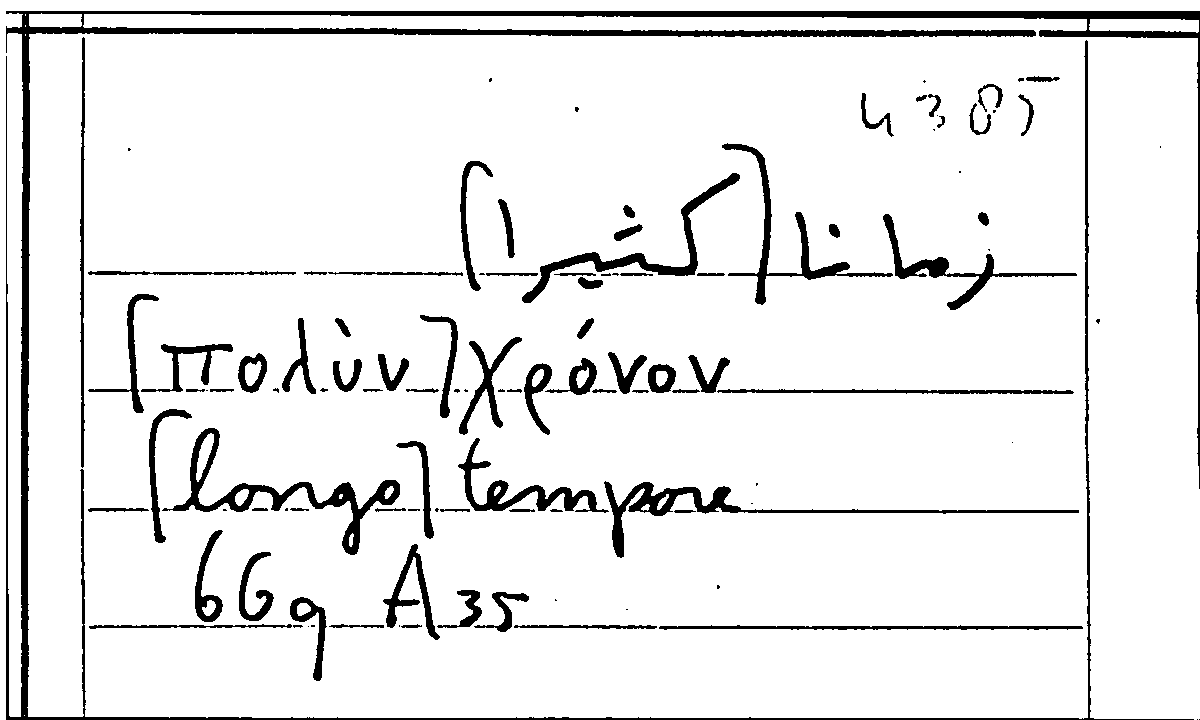 4385
زمانا ⌈كثيرا⌉
⌈πολὺν⌉ χρόνον
⌈longo⌉ tempore
66q A 35